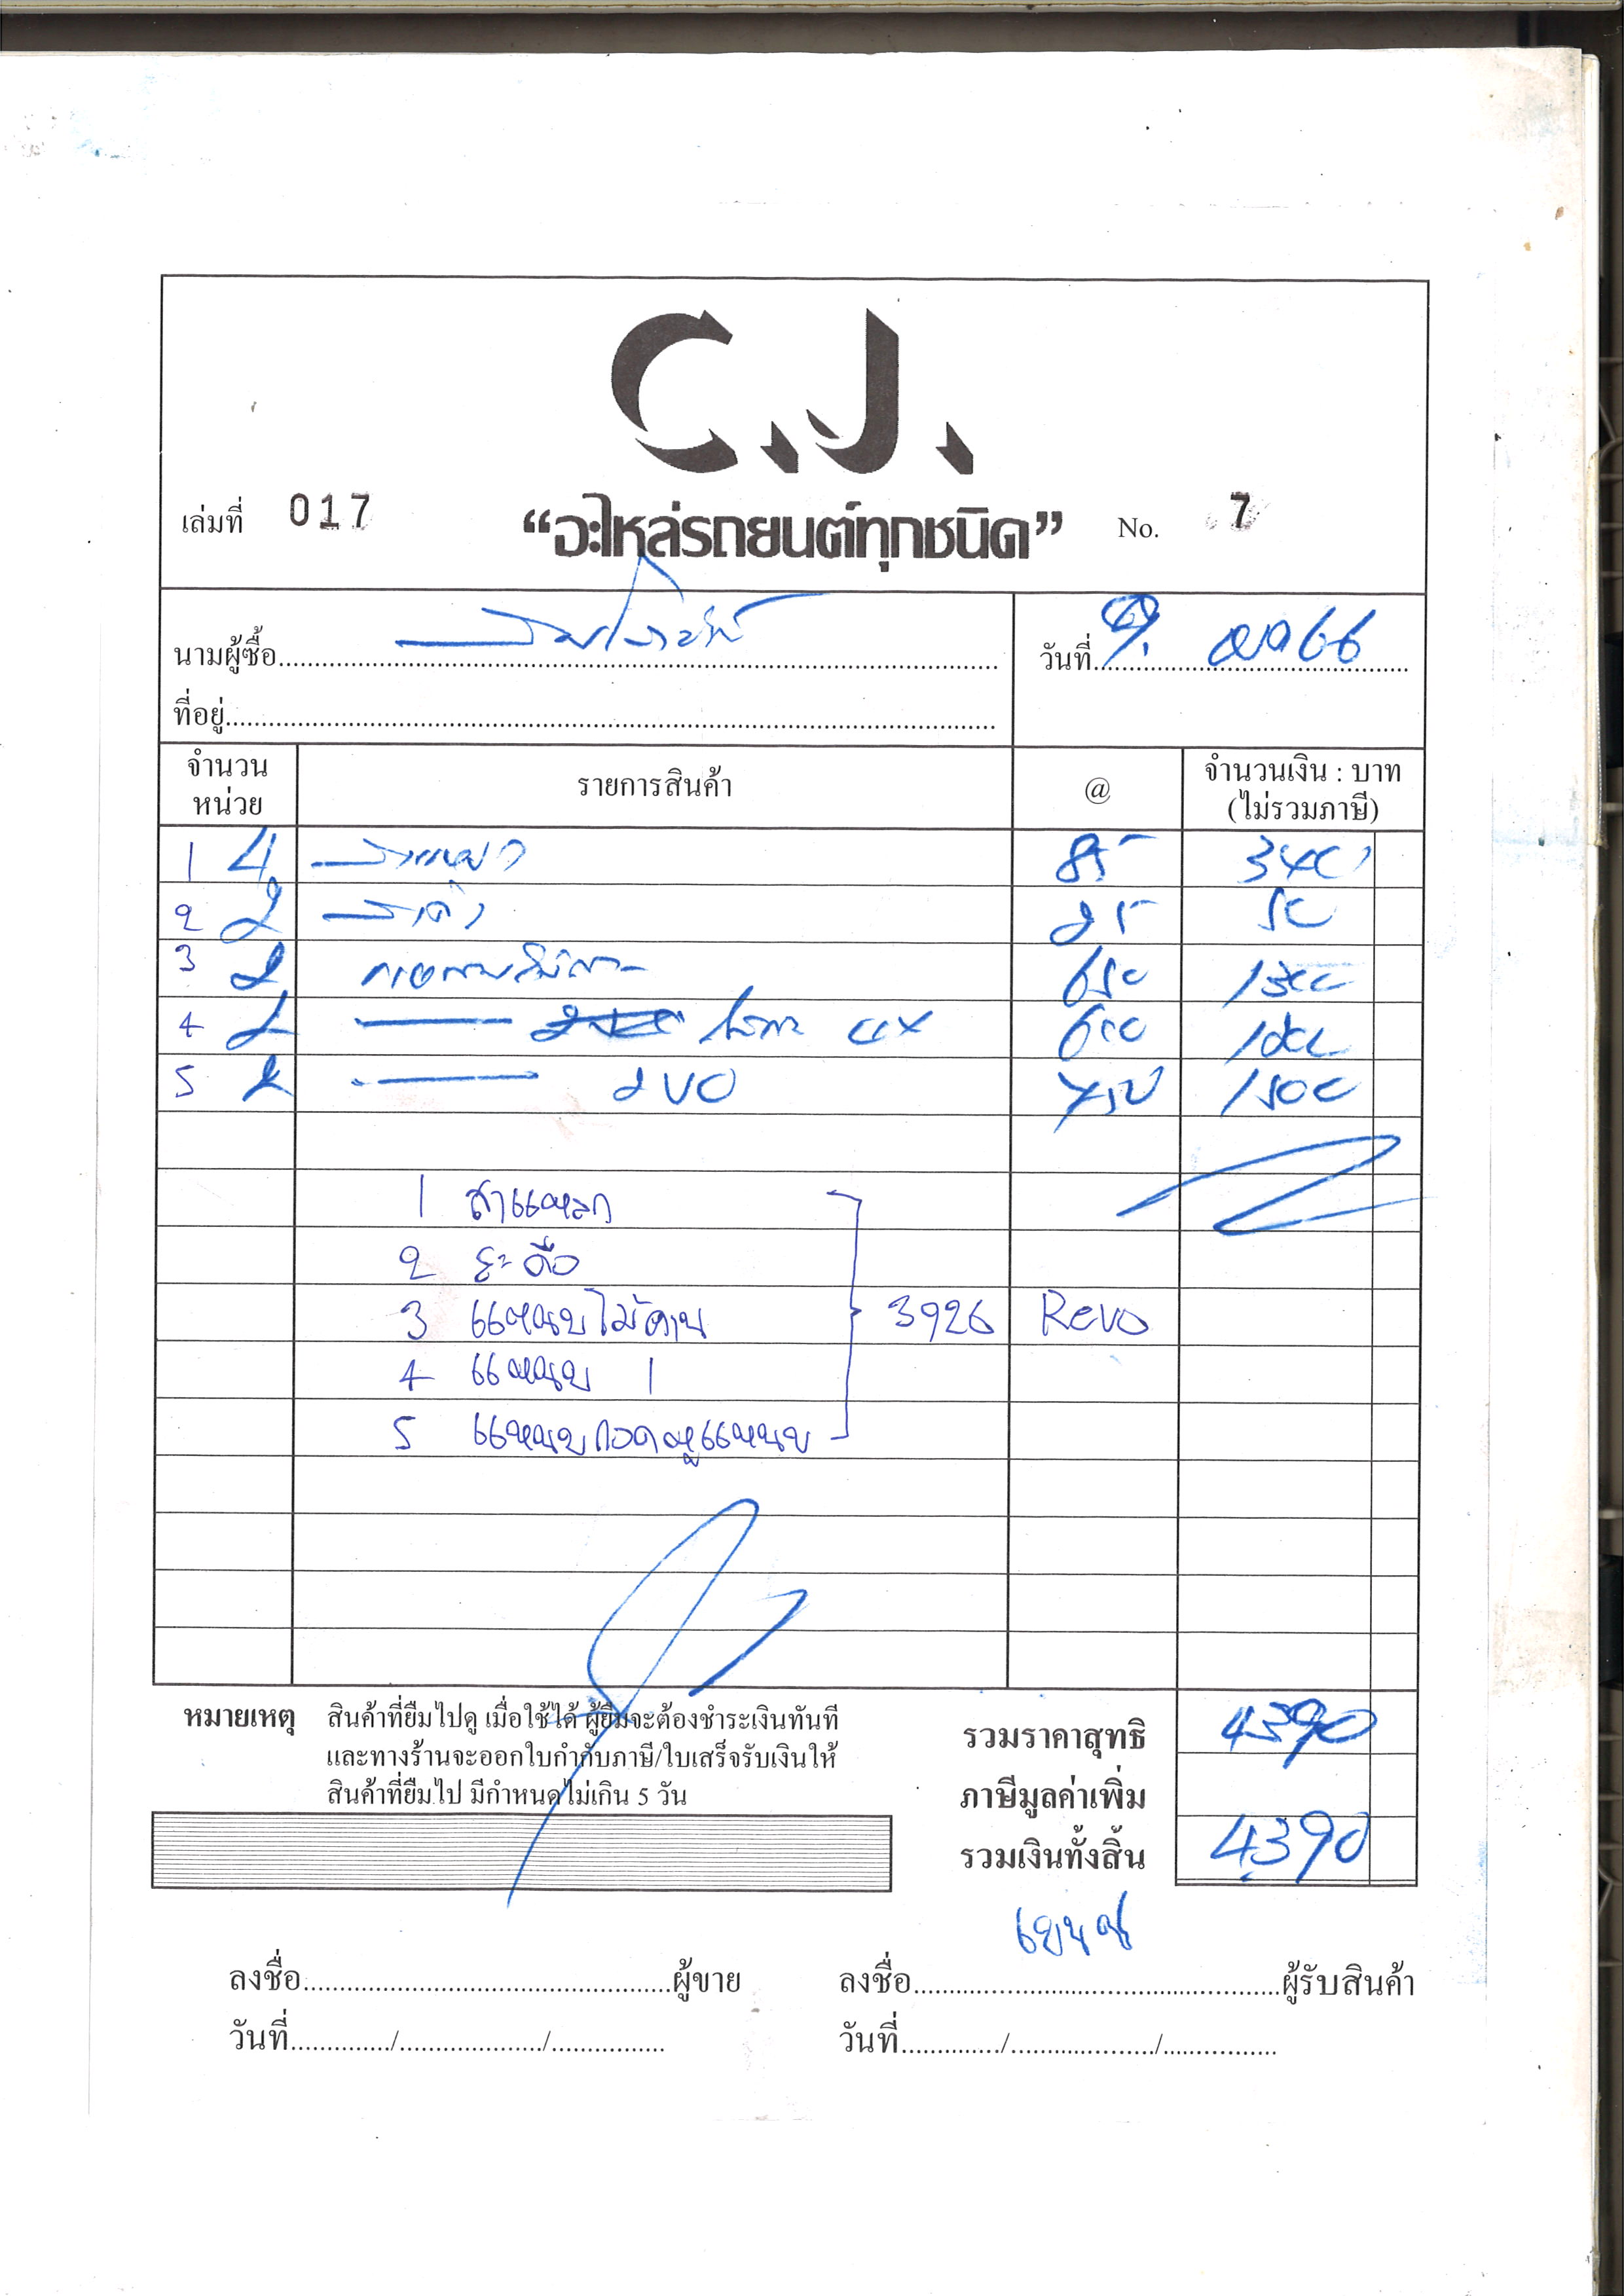 C.J.
เล่มที่ 017 “อะไหล่รถยนต์ทุกชนิด” No. 7
นามผู้ซื้อ
วันที่ 66
ที่อยู่
จำนวน หน่วย รายการสินค้า @ จำนวนเงิน : บาท (ไม่รวมภาษี)
1 4 85 340
2 2 25 50
3 2 650 1300
4 2 600 1200
5 2 750 1500
1 สาแหลก
2 สะดือ
3 แหนบไม้คาน 3926 Revo
4 แหนบ 1
5 แหนบกอดหูแหนบ
หมายเหตุ สินค้าที่ยืมไปดู เมื่อใช้ได้ ผู้ยืมจะต้องชำระเงินทันที
และทางร้านจะออกใบกำกับภาษี/ใบเสร็จรับเงินให้
สินค้าที่ยืมไป มีกำหนดไม่เกิน 5 วัน
รวมราคาสุทธิ 4390
ภาษีมูลค่าเพิ่ม
รวมเงินทั้งสิ้น 4390
ลงชื่อ ผู้ขาย ลงชื่อ ผู้รับสินค้า
วันที่ / / วันที่ / /